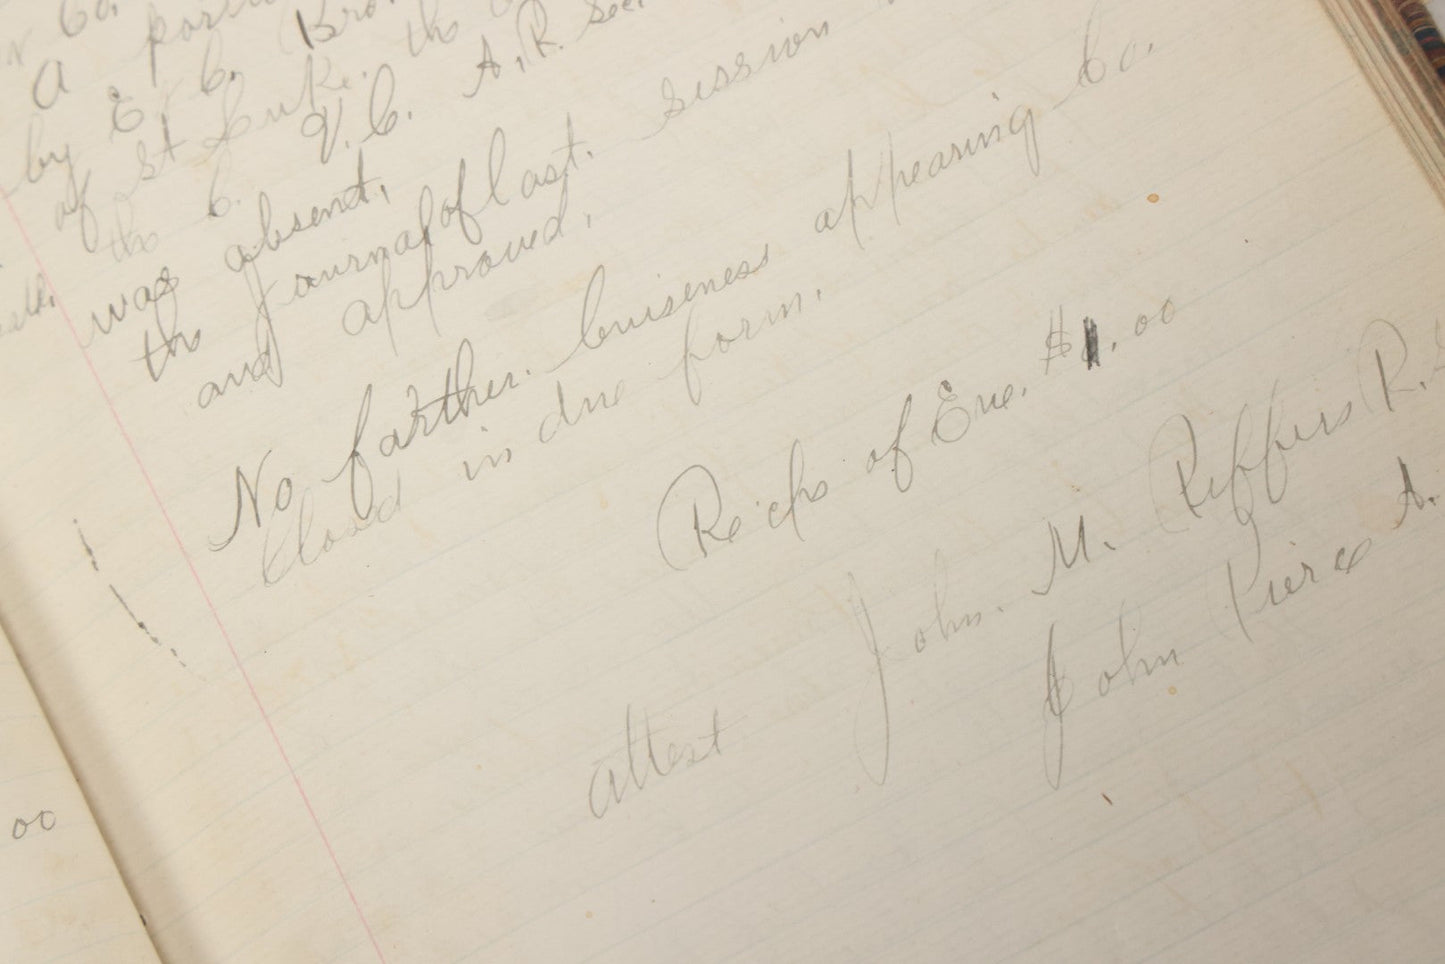 Co.
A
by E. C. Bro
of St Luke. the
the C. V. C. A. R. Sec.
was absent,
the Journal of last. session
and approved,
No farther. buiseness appearing Co.
Closed in due form.
Reichs of Eve. $1.00
John. M. Peffers R. S
attest John Pierce A.
00